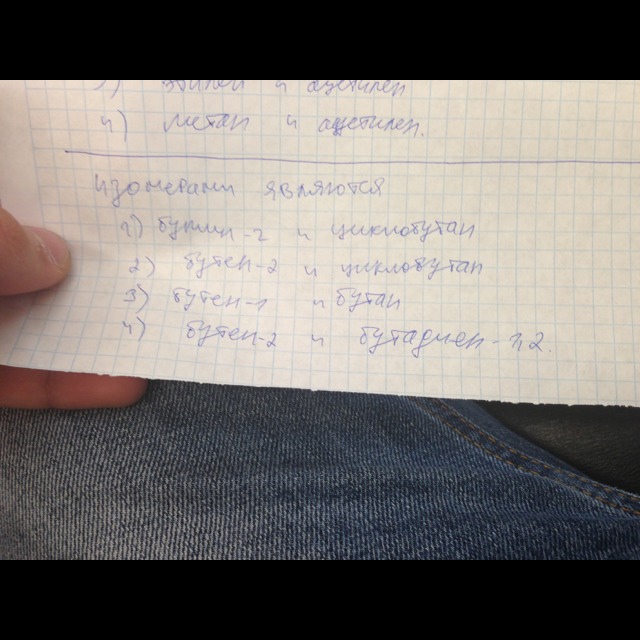 3) этилен и ацетилен
4) метан и ацетилен.
изомерами являются
1) бутин-2 и циклобутан
2) бутен-2 и циклобутан
3) бутен-1 и бутан
4) бутен-2 и бутадиен-1,2.